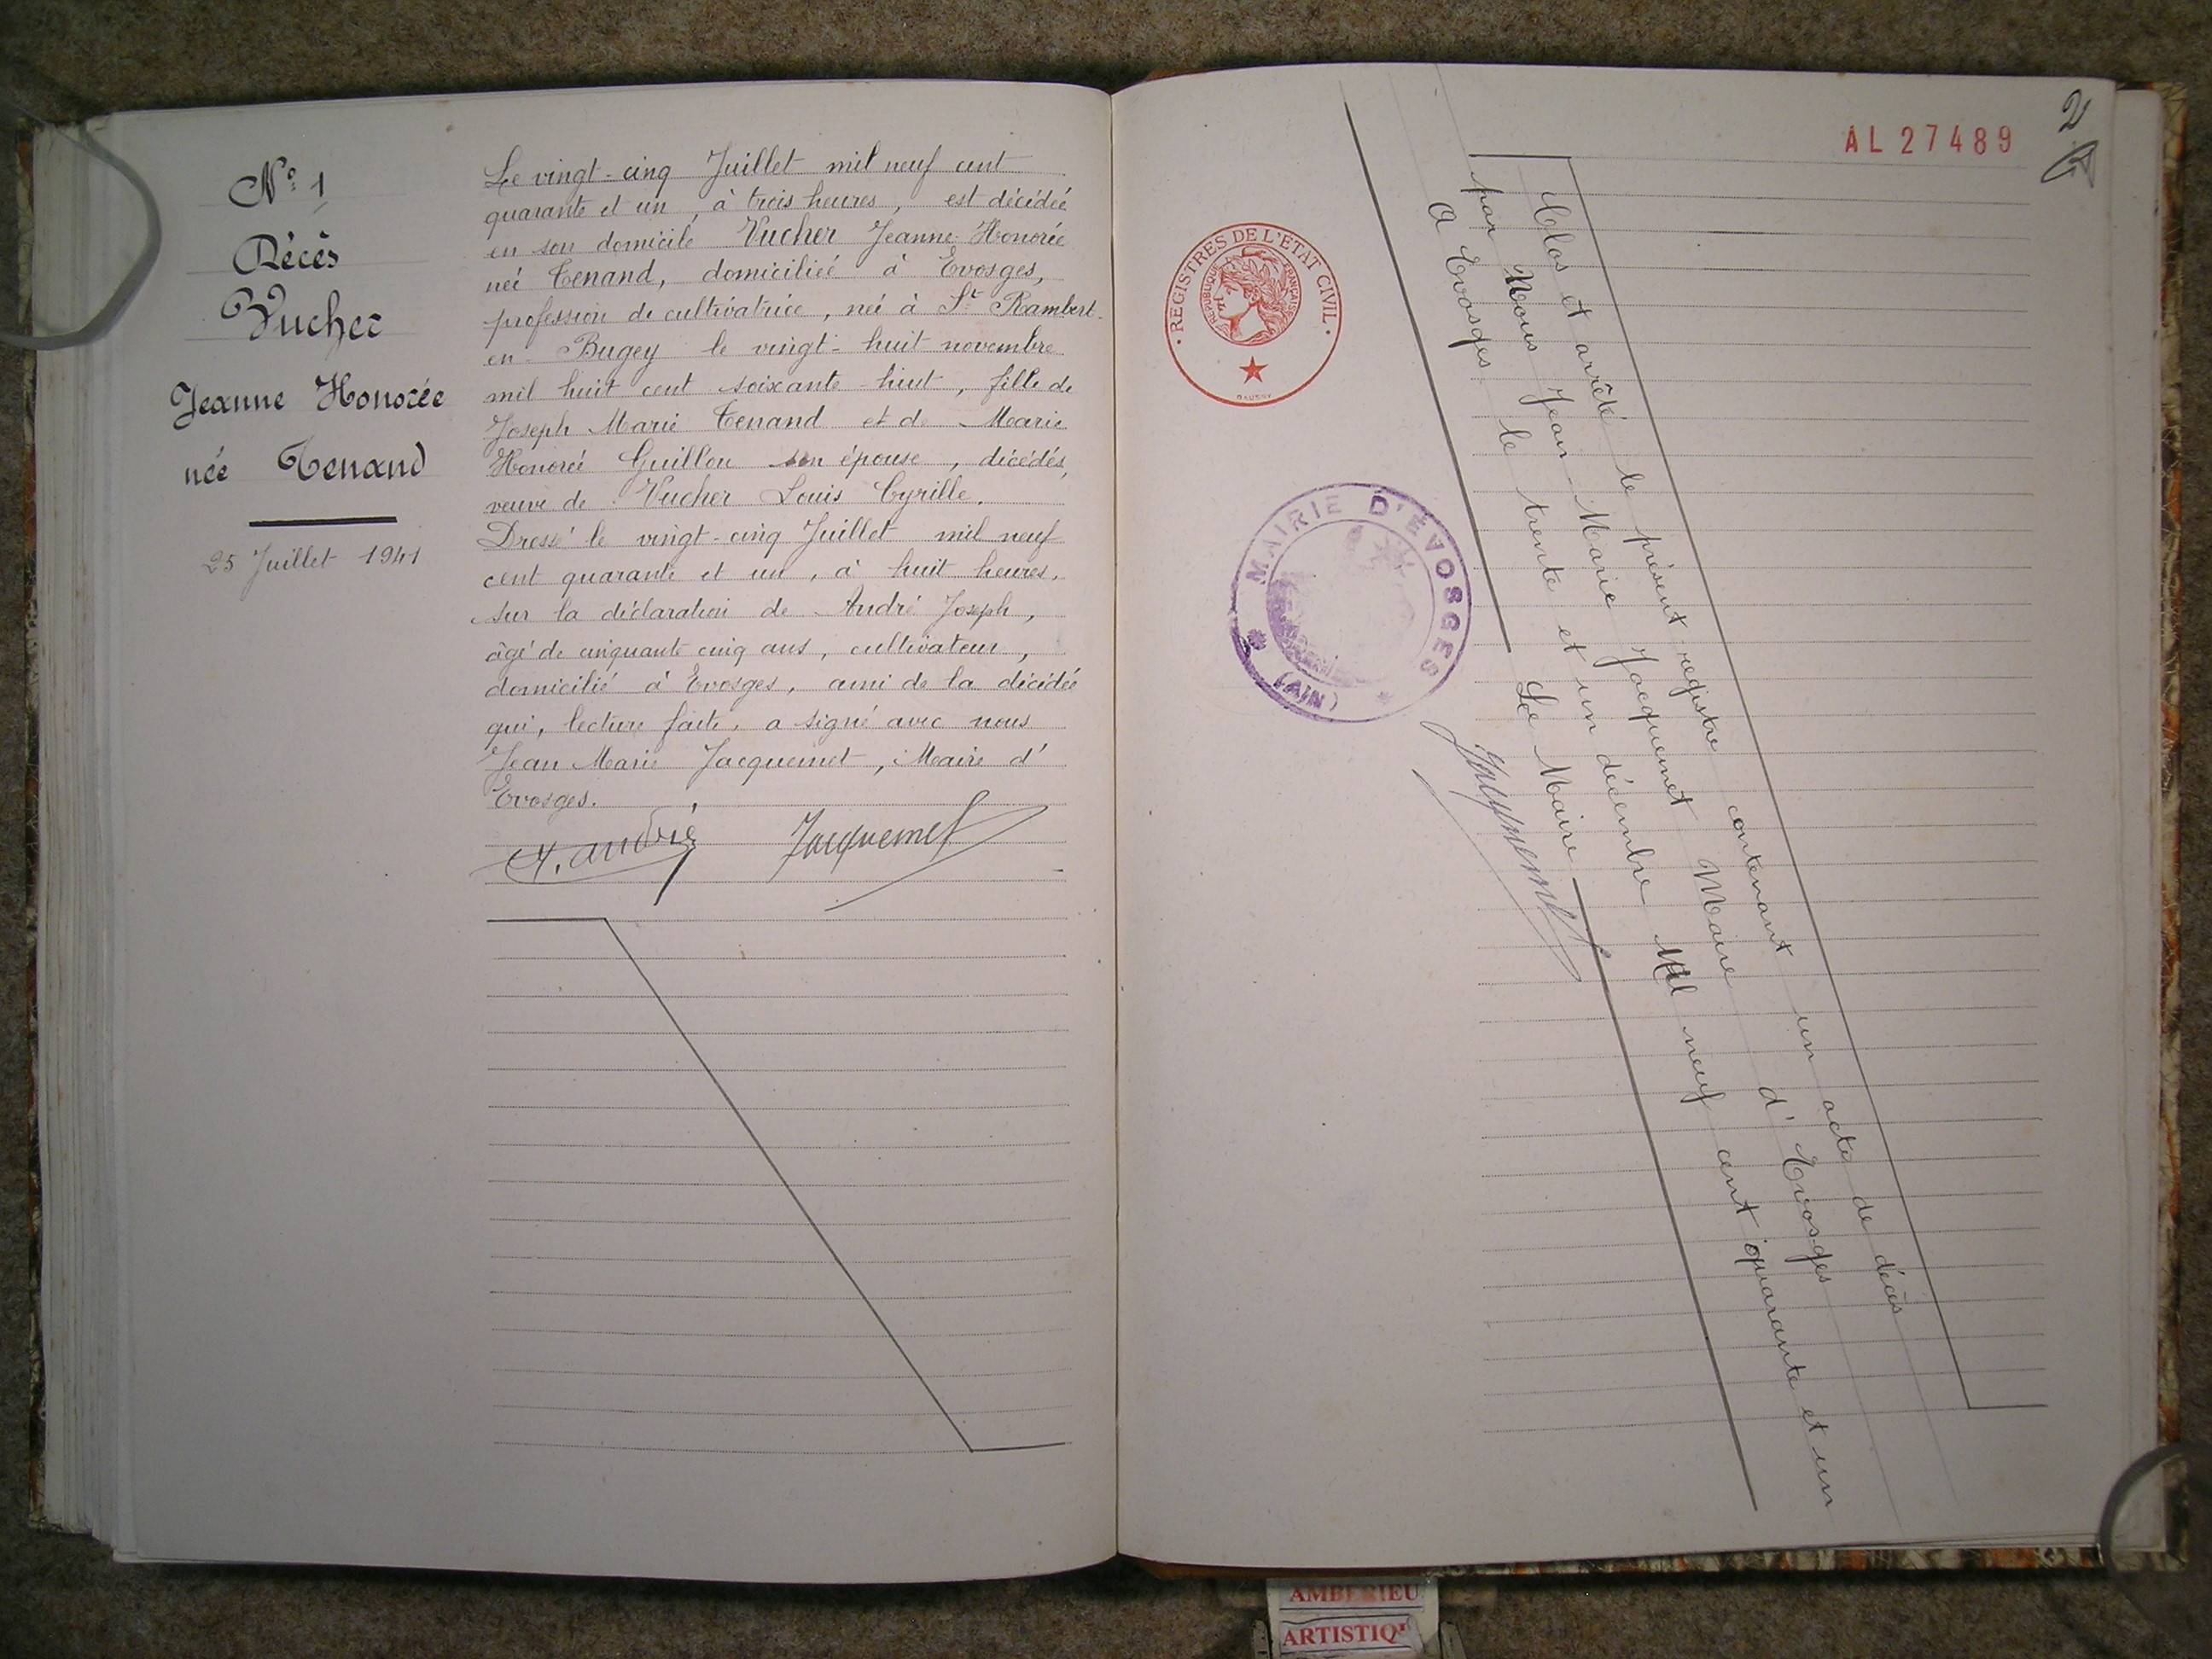 N° 1
Décès
Vucher
Jeanne Honorée
née Tenand
25 Juillet 1941
Le vingt-cinq Juillet mil neuf cent
quarante et un, à trois heures, est décédée
en son domicile Vucher Jeanne Honorée
née Tenand, domiciliée à Evosges,
profession de cultivatrice, née à St Rambert-
en-Bugey le vingt-huit novembre
mil huit cent soixante-huit, fille de
Joseph Marie Tenand et de Marie
Honorée Guillon son épouse, décédés,
veuve de Vucher Louis Cyrille.
Dressé le vingt-cinq Juillet mil neuf
cent quarante et un, à huit heures,
sur la déclaration de André Joseph,
âgé de cinquante cinq ans, cultivateur,
domicilié à Evosges, ami de la décédée
qui, lecture faite, a signé avec nous
Jean Marie Jacquemet, Maire d'
Evosges.
André Jacquemet
2
AL 27489
REGISTRES DE L'ÉTAT CIVIL
RÉPUBLIQUE FRANÇAISE
MAIRIE D'ÉVOSGES
(AIN)
Clos et arrêté le présent registre contenant un acte de décès
par Nous Jean-Marie Jacquemet Maire d'Evosges
A Evosges le trente et un décembre Mil neuf cent quarante et un
Le Maire
Jacquemet
AMBERIEU
ARTISTIQ